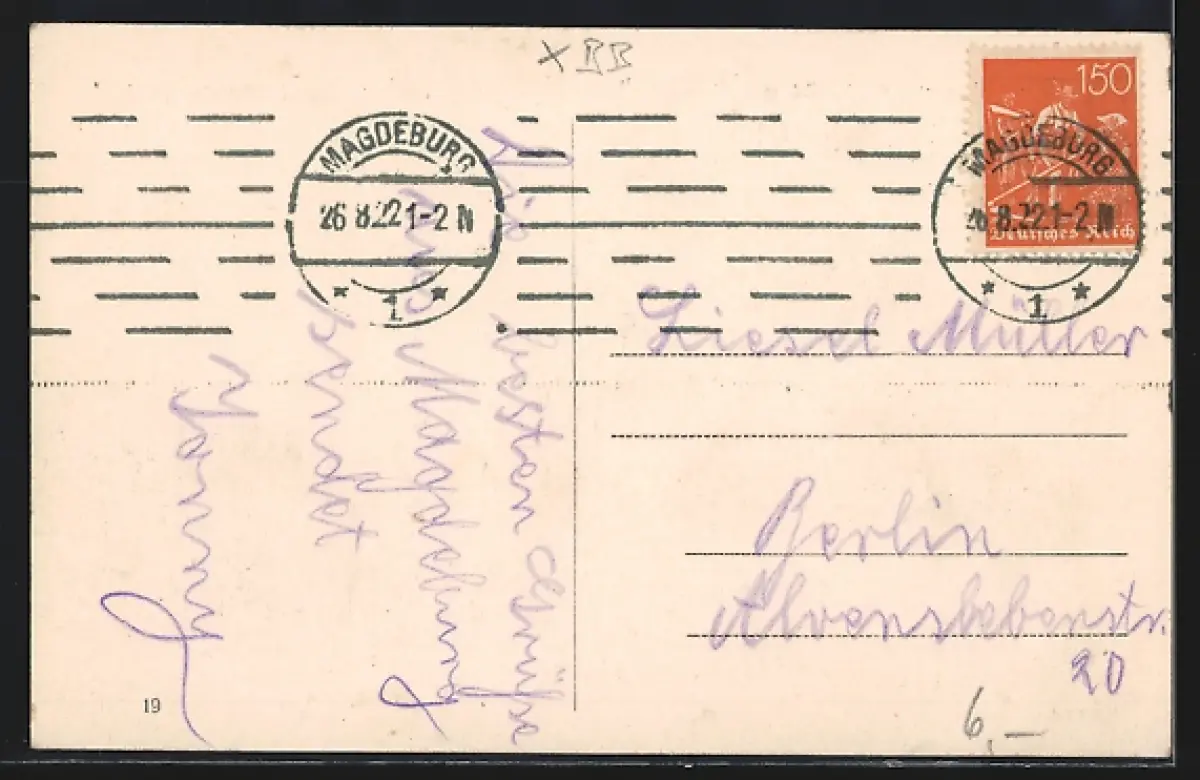 × BB
150
Deutsches Reich
MAGDEBURG
26.8.22 1-2 N
* 1 *
MAGDEBURG
26.8.22 1-2 N
* 1 *
Die besten Grüße
aus Magdeburg
sendet
Liesel Müller
Berlin
Alvenslebenstr.
20
19
6,–